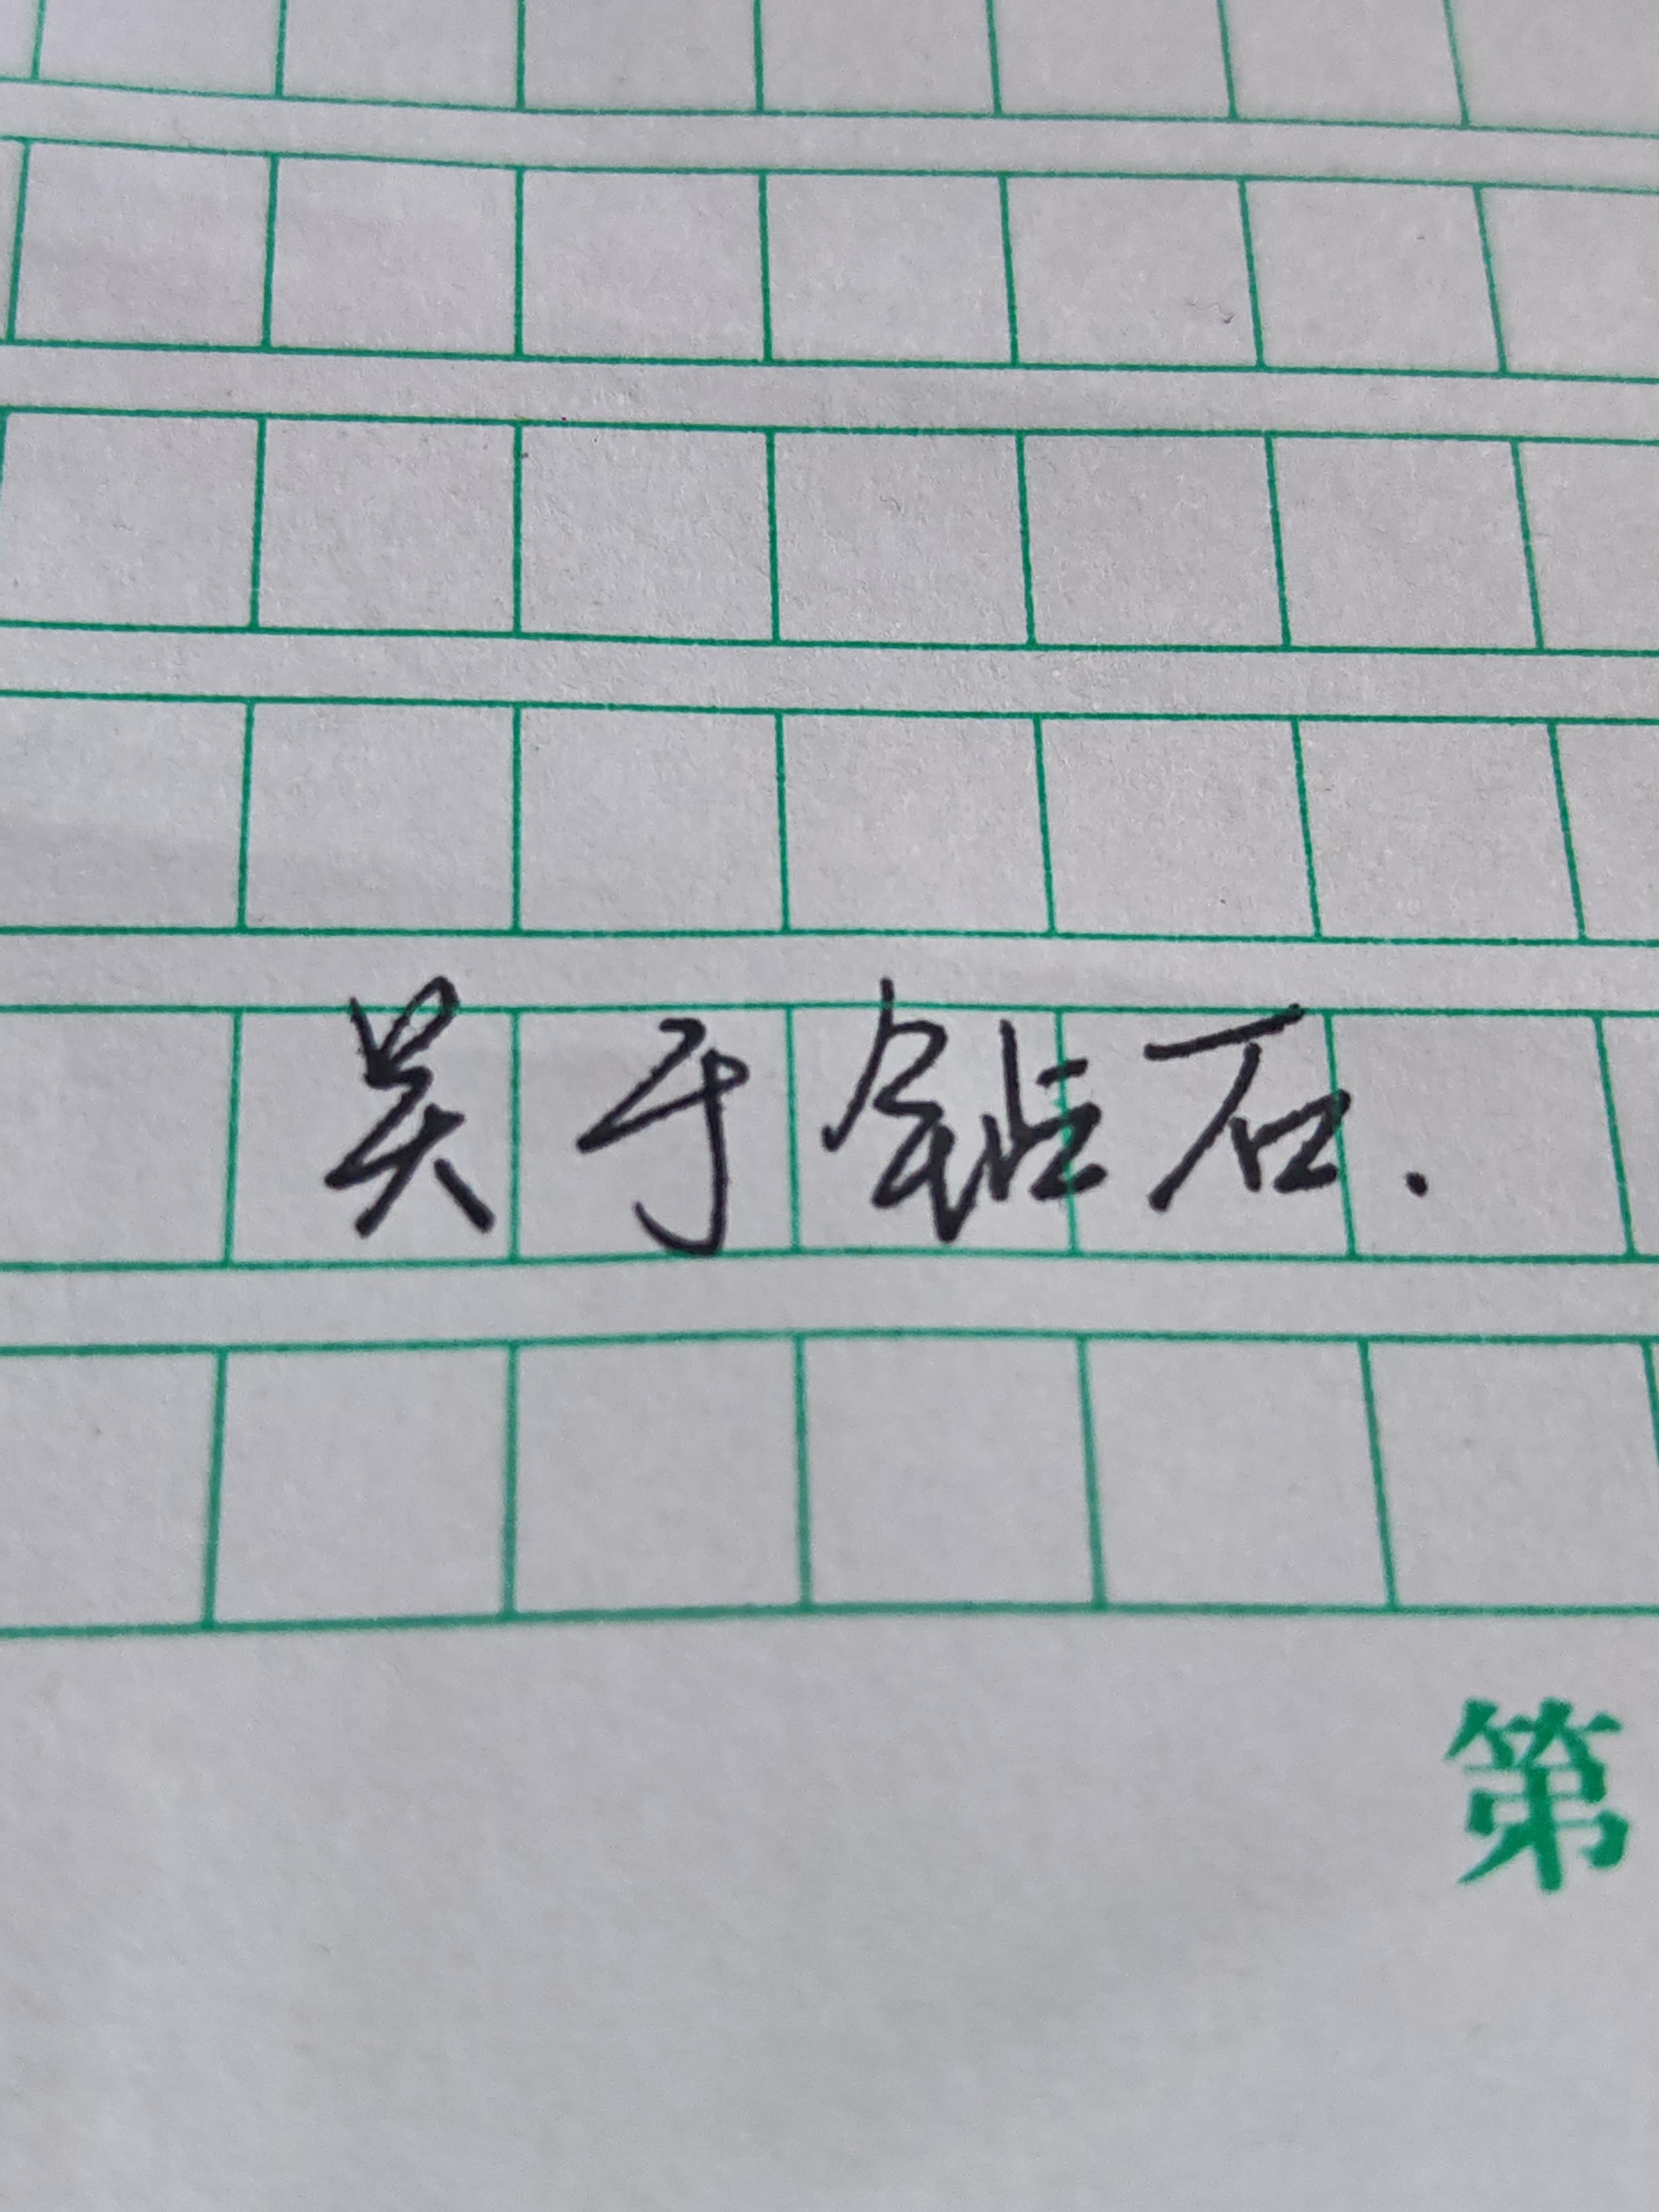 关于钻石.
第